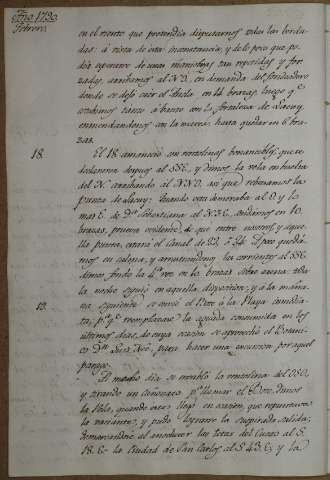 Año 1790
Febrero
en el viento que pretendia disputarnos todas las borda-
das á vista de esta inconstancia, y de lo poco que po-
dia esperarse de unas maniobras tan repetidas y for-
zadas, arribamos al NO. en demanda del fondeadero
donde se dejó caer el Ancla en 14 brazas, luego qe
estubimos tanto á barco con la fortaleza de Lacuy,
enmendandonos con la marea hasta quedar en 6 bra-
zas.
18.
El 18 amaneció con ventolinas bonancibles, que se
declararon despues al SSE, y dimos la vela en buelta
del N. arribando al NNO, asi que rebasamos la
punta de Lacuy: quando esta demoraba al O. y lo
mas E. de Dn Sebastiana al N.NE. caimos en 10
brazas, prueva evidente, de que entre nosotros, y aque-
lla punta, estará el canal de 23, ó 24. Pero queda-
mos en calma, y arrastrandonos las corrientes al SSE
dimos fondo la 4ª vez en 10 brazas sobre arena. Toda
la noche seguió en aquella disposición, y á la maña-
19.
na siguiente se envió el Bote á la Playa inmedia-
ta, pa qe remplazase la aguada consumida en los
ultimos dias, de cuya ocasion se aprovechó el Botani-
co Dn Luis Neé, para hacer una excursion por aquel
parage.
Al medio dia se entabló la ventolina del OSO,
y tirando un cañonazo pa llamar el Bote, dimos
la Vela, quando este llegó en ocasion, que repuntaba
la vaciante, y pudo lograrse la suspirada salida;
demorandonos al anochecer las tetas del Cucao al S.
18. E. la Ciudad de San Carlos al S. 43. E. y la